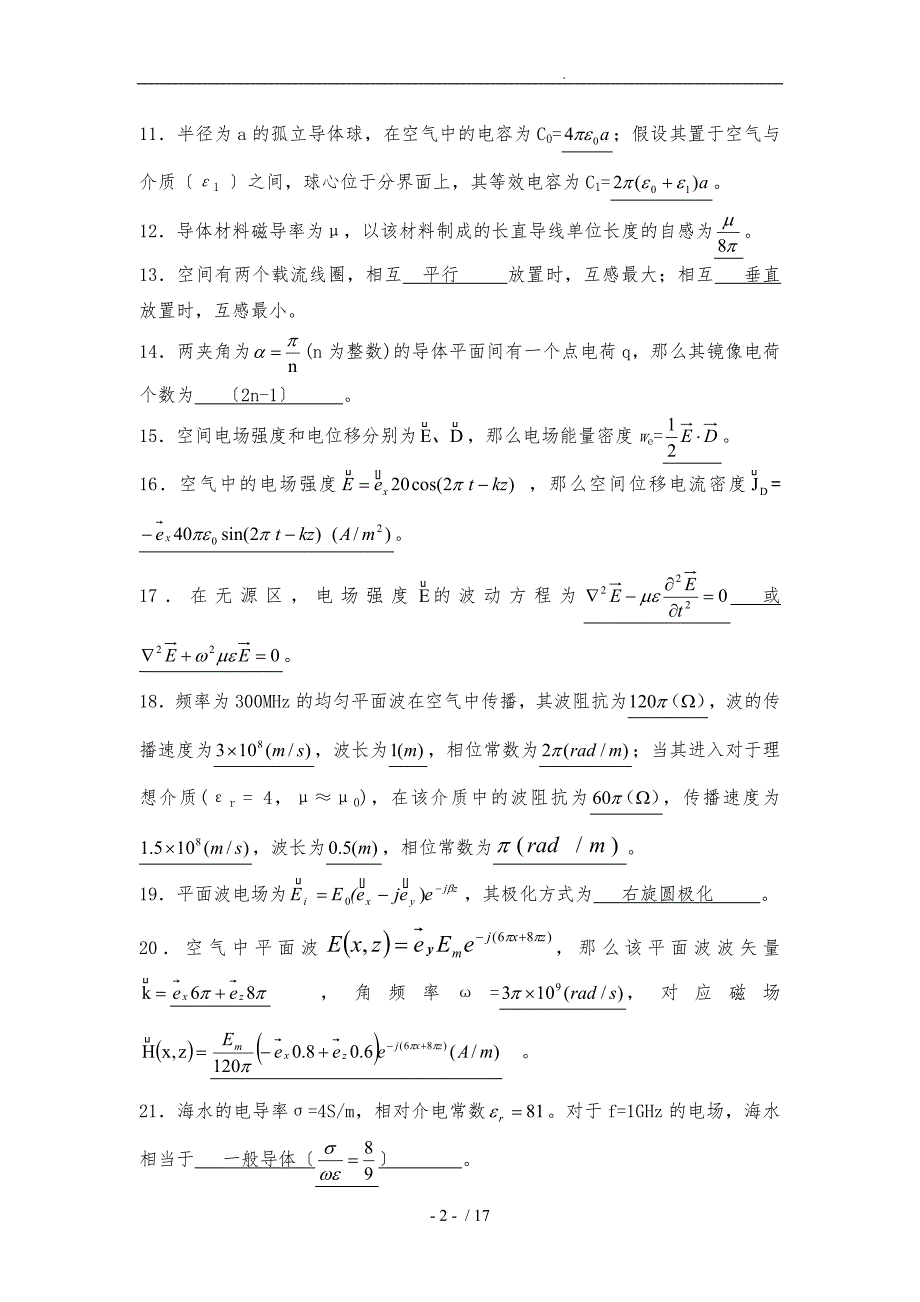 11．半径为a的孤立导体球，在空气中的电容为C₀=4πε₀a；假设其置于空气与
介质〔ε1〕之间，球心位于分界面上，其等效电容为C₁=2π(ε₀+ε₁)a。
12．导体材料磁导率为μ，以该材料制成的长直导线单位长度的自感为μ/8π。
13．空间有两个载流线圈，相互 平行 放置时，互感最大；相互 垂直
放置时，互感最小。
14．两夹角为α=π/n(n为整数)的导体平面间有一个点电荷q，那么其镜像电荷
个数为 〔2n-1〕 。
15．空间电场强度和电位移分别为E、D，那么电场能量密度wₑ=1/2 E·D。
16．空气中的电场强度E=eₓ20cos(2πt−kz) ，那么空间位移电流密度J_D=
−eₓ40πε₀sin(2πt−kz) (A/m²)。
17．在无源区，电场强度E的波动方程为∇²E−με∂²E/∂t²=0 或
∇²E+ω²μεE=0。
18．频率为300MHz的均匀平面波在空气中传播，其波阻抗为120π(Ω)，波的传
播速度为3×10⁸(m/s)，波长为1(m)，相位常数为2π(rad/m)；当其进入对于理
想介质(εr = 4，μ≈μ0)，在该介质中的波阻抗为60π(Ω)，传播速度为
1.5×10⁸(m/s)，波长为0.5(m)，相位常数为π(rad /m)。
19．平面波电场为E_i=E₀(eₓ−je_y)e^{−jβz}，其极化方式为 右旋圆极化 。
20．空气中平面波E(x,z)=e_yE_me^{−j(6πx+8πz)}，那么该平面波波矢量
k=eₓ6π+e_z8π ，角频率ω=3π×10⁹(rad/s)，对应磁场
H(x,z)=E_m/120π(−eₓ0.8+e_z0.6)e^{−j(6πx+8πz)}(A/m) 。
21．海水的电导率σ=4S/m，相对介电常数ε_r=81。对于f=1GHz的电场，海水
相当于 一般导体〔σ/ωε=8/9〕 。
- 2 - / 17